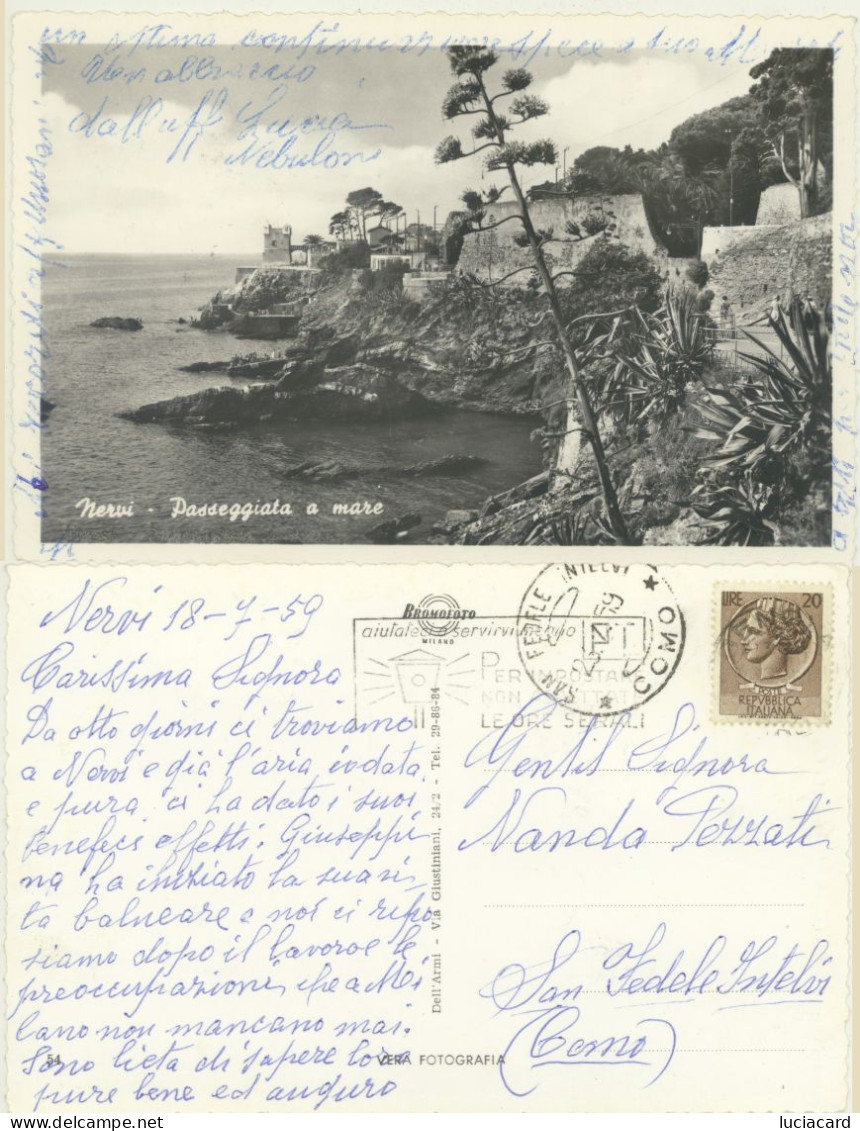 un ottima continuazione specie a suo
Un abbraccio
dall'aff Lucia
Nebuloni
Mi ricordi
Nervi - Passeggiata a mare
Nervi 18-7-59
Carissima Signora
Da otto giorni ci troviamo
a Nervi e già l'aria iodata
e pura ci ha dato i suoi
benefici effetti. Giuseppi
na ha iniziato la sua vi
ta balneare e noi ci ripo
siamo dopo il lavoro e le
preoccupazioni che a Mi
lano non mancano mai.
Sono lieta di sapere loro
pure bene ed auguro
54
BROMOFOTO
MILANO
aiutateci a servirvi meglio
PER IMPOSTARE
NON
LE ORE SERALI
SAN FEDELE INTELVI
COMO
LIRE 20
POSTE
REPVBBLICA
ITALIANA
Dell'Armi - Via Giustiniani, 24/2 - Tel. 29-86-84
Gentil Signora
Nanda Pozzati
San Fedele Intelvi
(Como)
VERA FOTOGRAFIA
luciacard